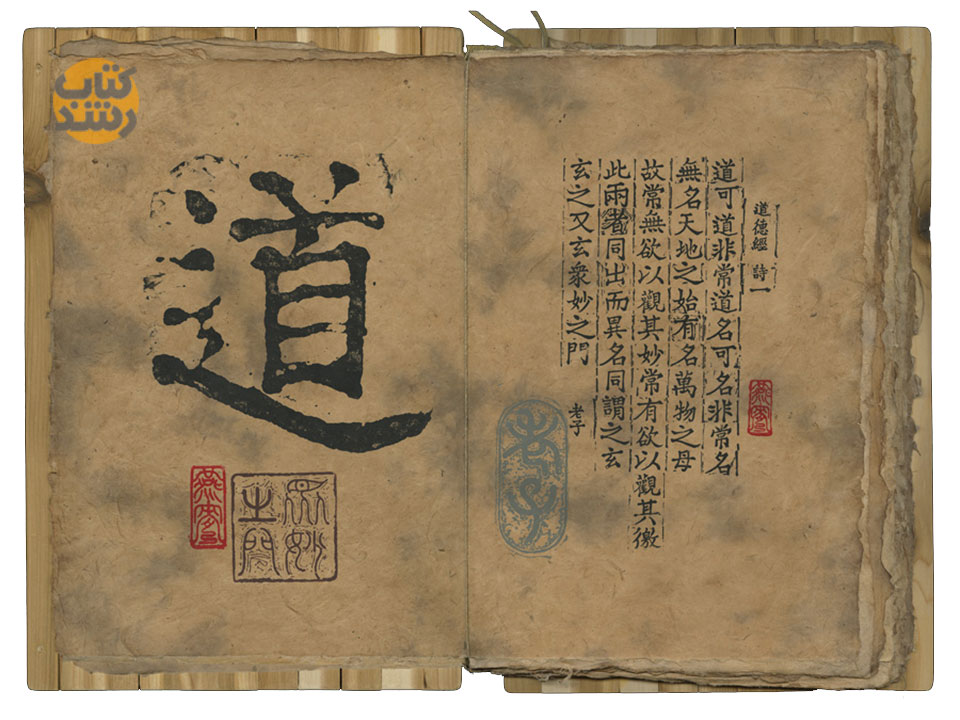 کتاب
رشد
道德經 詩一
道可道非常道名可名非常名
無名天地之始有名萬物之母
故常無欲以觀其妙常有欲以觀其徼
此兩者同出而異名同謂之玄
玄之又玄衆妙之門
老子
老子
道
衆妙
之門